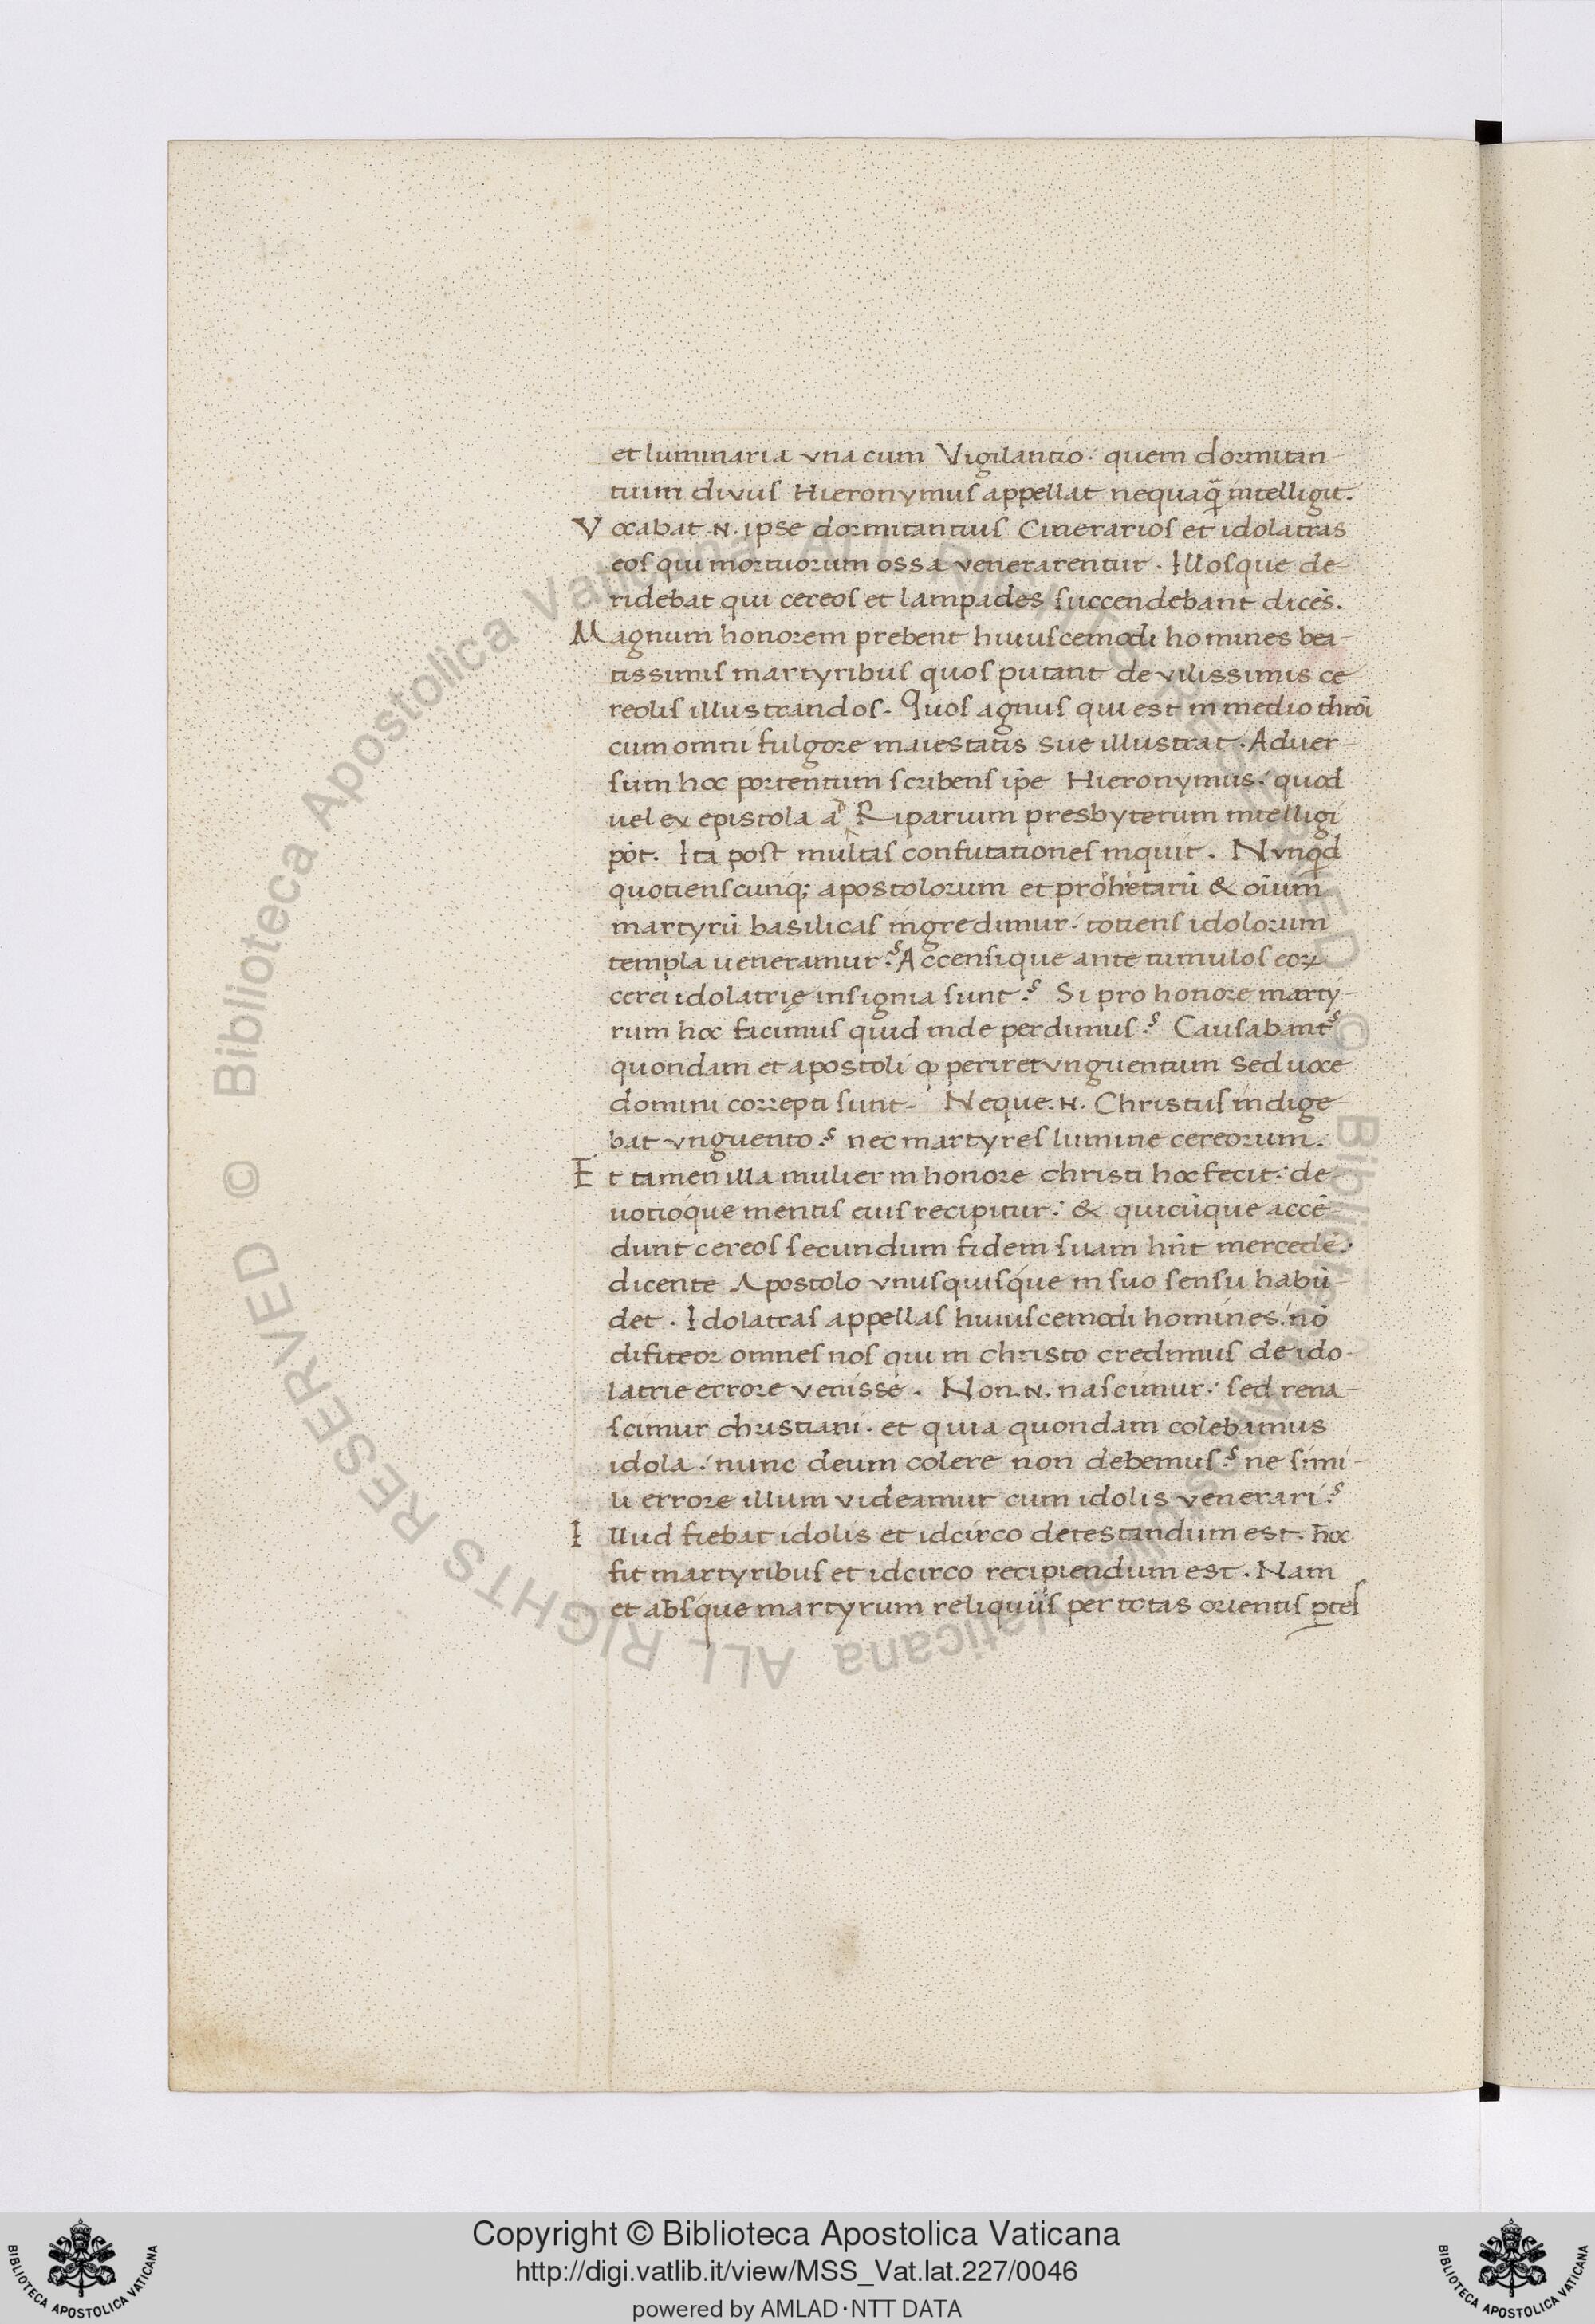 et luminaria vna cum Vigilantio: quem dormitan-
tium divus Hieronymus appellat nequaq̃ intelligit.
Vocabat .N. ipse dormitantius Cinerarios et idolatras
eos qui mortuorum ossa venerarentur. Illosque de-
ridebat qui cereos et lampades succendebant dicēs.
Magnum honorem prebent huiuscemodi homines bea-
tissimis martyribus quos putant de vilissimis ce-
reolis illustrandos. Quos agnus qui est in medio throi
cum omni fulgore maiestatis sue illustrat. Aduer-
sum hoc portentum scribens ip̄e Hieronymus: quod
uel ex epistola ad Riparium presbyterum intelligi
pōt. Ita post multas confutationes inquit. Nvnqd
quotienscunq; apostolorum et prohetarū & oīum
martyrū basilicas ingredimur: totiens idolorum
templa ueneramur? Accensique ante tumulos eoꝝ
cerei idolatrię insignia sunt? Si pro honore marty-
rum hoc facimus quid inde perdimus? Causabant
quondam et apostoli ꝙ periret vnguentum sed uoce
domini correpti sunt. Neque .N. Christus indige-
bat vnguento? nec martyres lumine cereorum.
Et tamen illa mulier in honore christi hoc fecit: de-
uotioque mentis eius recipitur: & quicūque accē-
dunt cereos secundum fidem suam hn̄t mercedē.
dicente Apostolo vnusquisque in suo sensu habū-
det. Idolatras appellas huiuscemodi homines: nō
difiteor omnes nos qui in christo credimus de ido-
latrie errore venisse. Non .N. nascimur: sed rena-
scimur christiani. et quia quondam colebamus
idola: nunc deum colere non debemus? ne simi-
li errore illum videamur cum idolis venerari?
Illud fiebat idolis et idcirco detestandum est. hoc
fit martyribus et idcirco recipiendum est. Nam
et absque martyrum reliquiis per totas orientis ꝑtes
© Biblioteca Apostolica Vaticana ALL RIGHTS RESERVED © Biblioteca Apostolica Vaticana ALL RIGHTS RESERVED
Copyright © Biblioteca Apostolica Vaticana
http://digi.vatlib.it/view/MSS_Vat.lat.227/0046
powered by AMLAD·NTT DATA
BIBLIOTECA APOSTOLICA VATICANA
BIBLIOTECA APOSTOLICA VATICANA